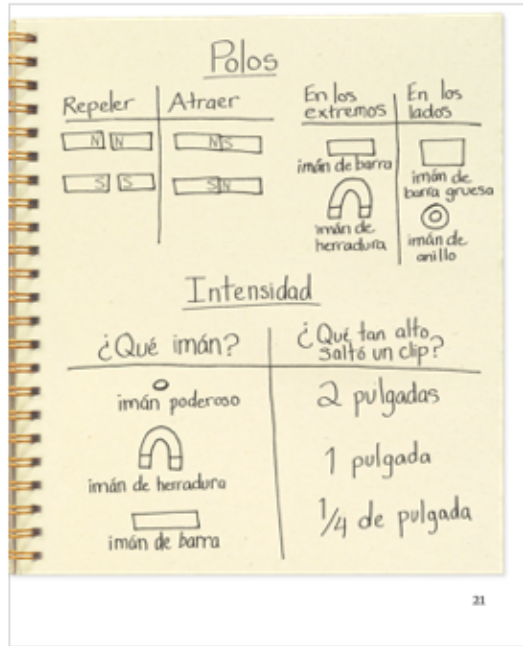 Polos
Repeler
Atraer
N N
N S
S S
S N
En los
extremos
En los
lados
imán de barra
imán de
herradura
imán de
barra gruesa
imán de
anillo
Intensidad
¿Qué imán?
¿Qué tan alto
saltó un clip?
imán poderoso
2 pulgadas
imán de herradura
1 pulgada
imán de barra
1/4 de pulgada
21